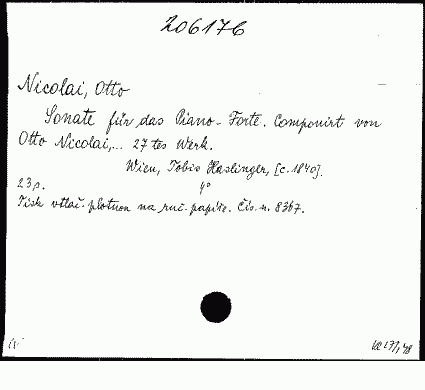 206176
Nicolai, Otto
Sonate für das Piano-Forte. Componirt von
Otto Nicolai,... 27tes Werk.
Wien, Tobis Haslinger, [c.1840].
23 s. 4°
Tisk vtlač. plotnon na ruč. papiře. Čís. n. 8367.